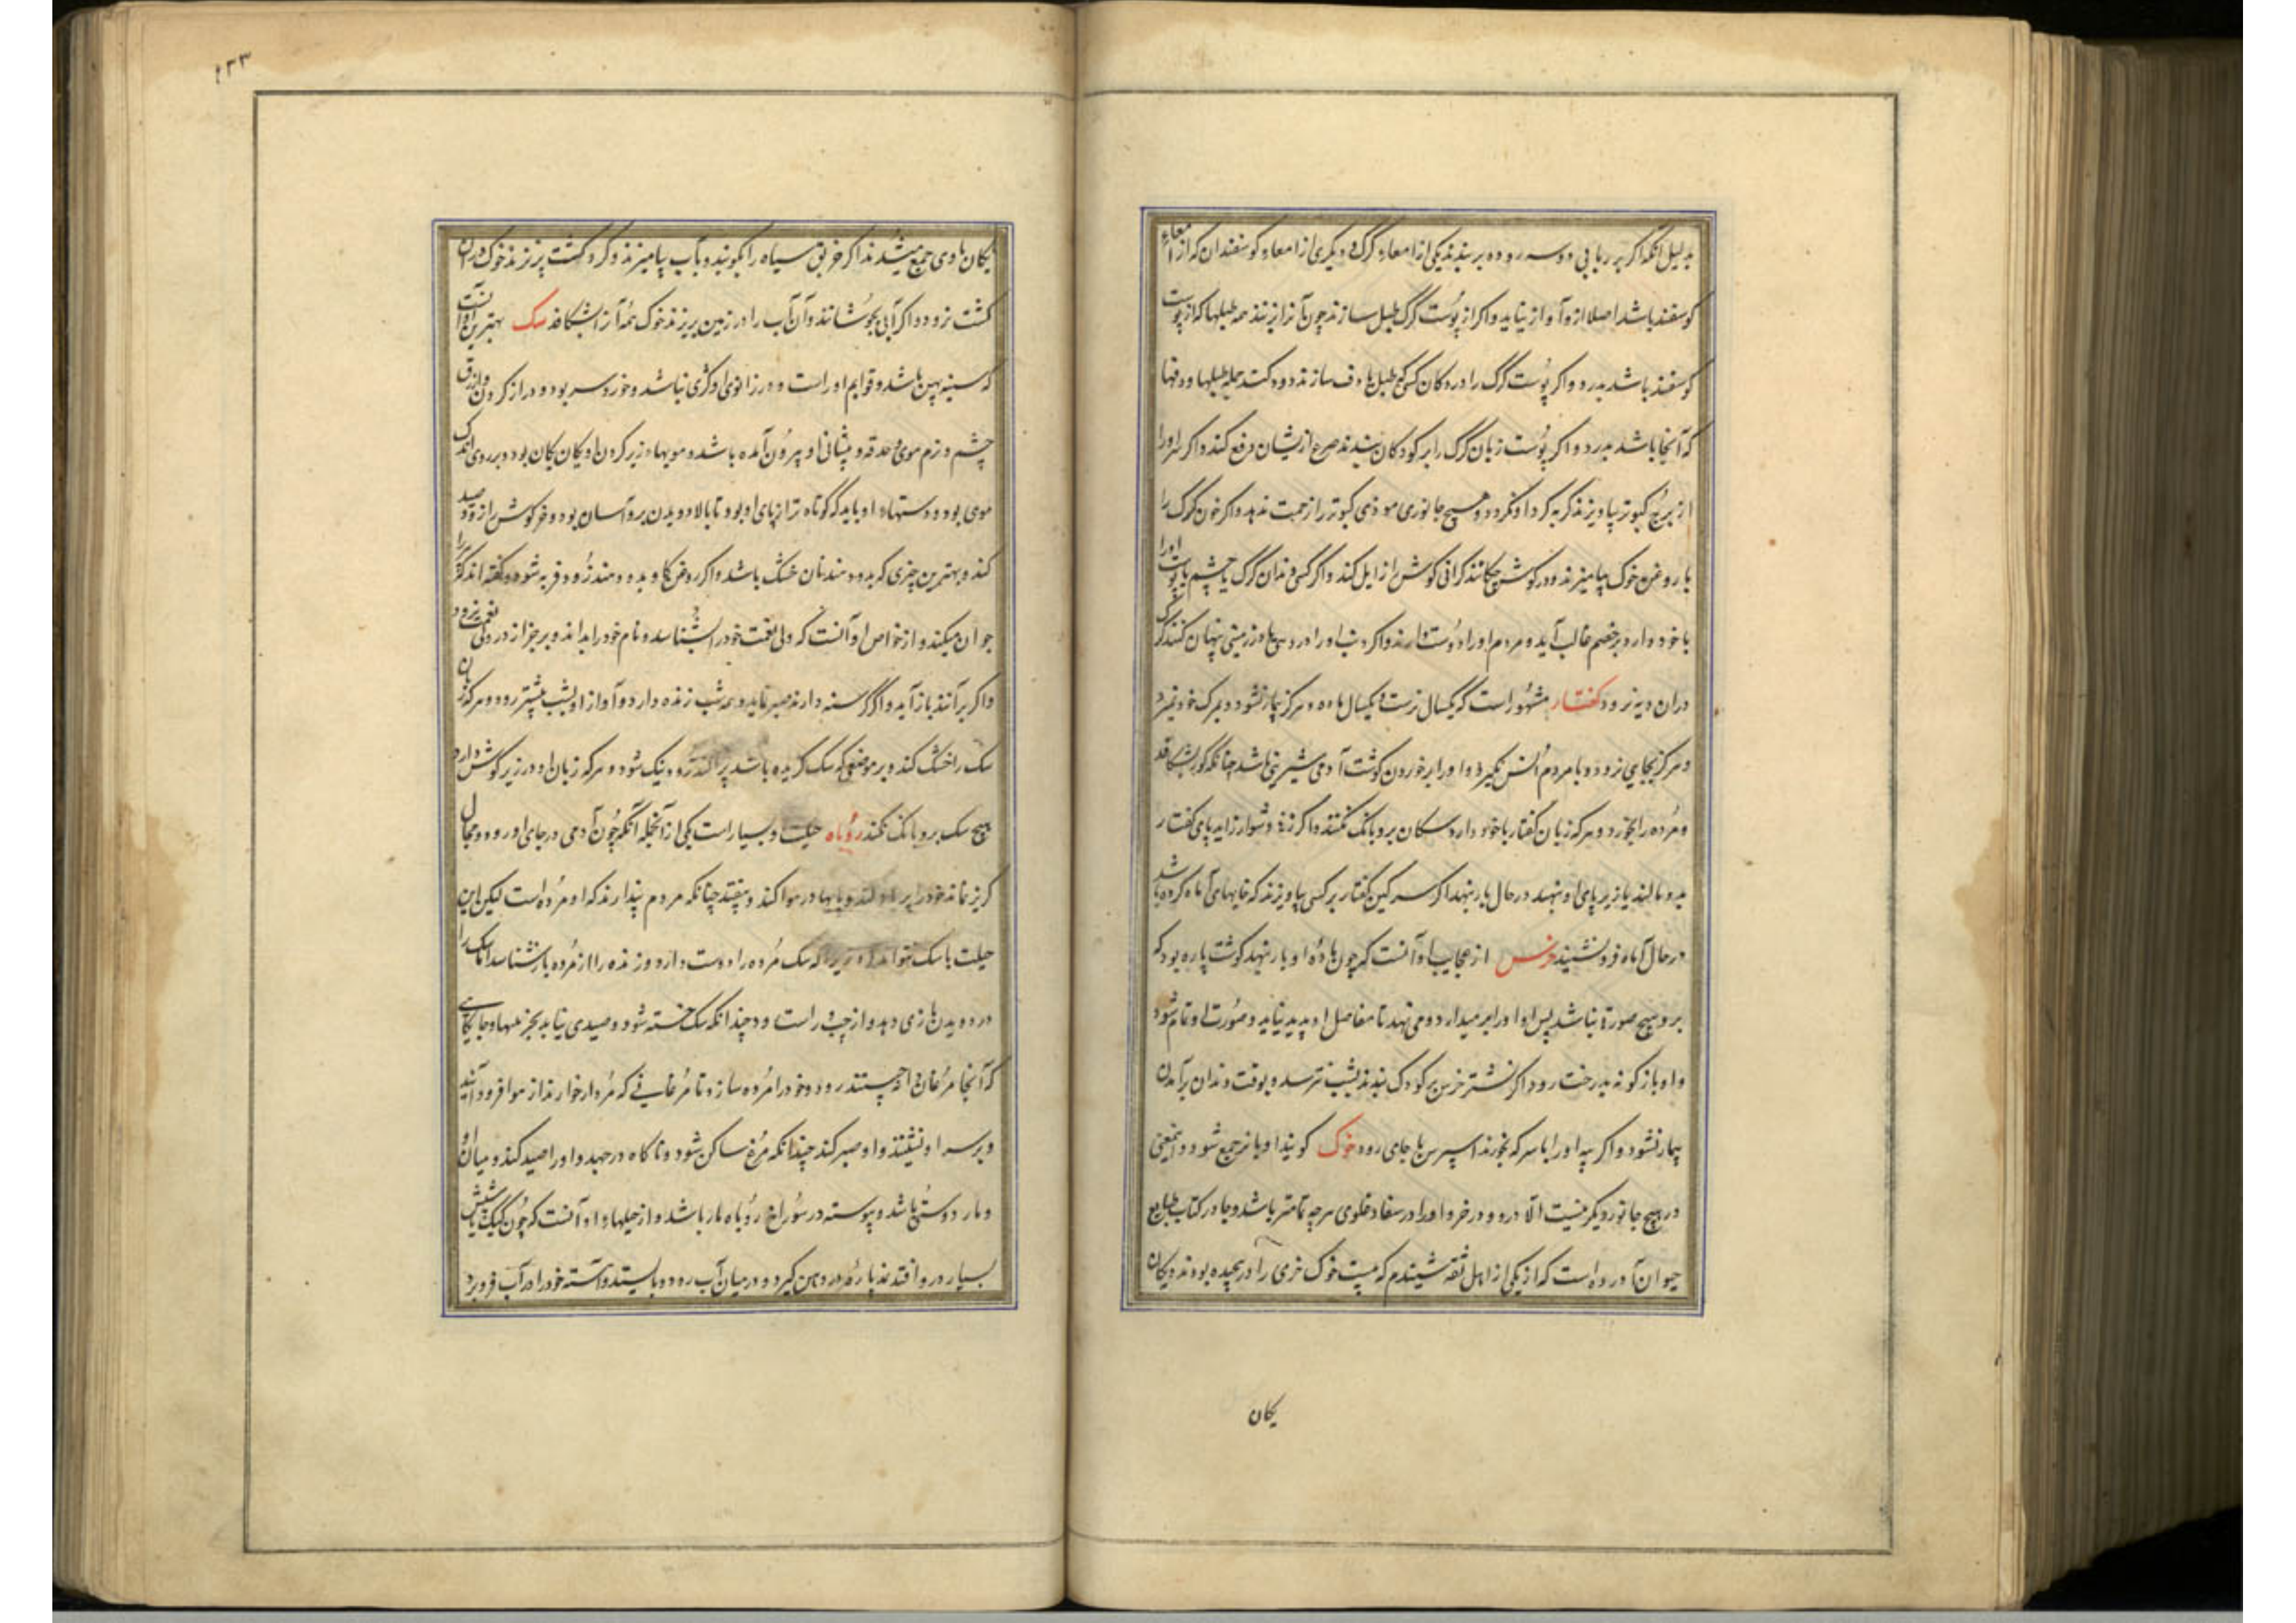 بدلیل آنکه اگر بر ربابی دو سه روده بربندند یکی از امعاء کرک و دیگری از امعاء کوسفندان که از امعاء
کوسفند باشد اصلا ازو آواز نیاید و اکر از پوست کرک طبل سازند چون آنرا بزنند همه طبلها که از پوست
کوسفند باشد بدرد و اکر پوست کرک را در دکان کسی که طبل یا دف سازند دود کنند جمله طبلها و دفها
که آنجا باشد بدرد و اکر پوست زبان کرک را بر کودکان بندند صرع ازیشان دفع کند و اکر سر او را
از برج کبوتر بیاویزند کربه کرد او نکردد و هیچ جانوری موذی کبوتر را زحمت ندهد و اکر خون کرک را
با روغن خوک بیامیزند و در کوش چکانند کرانی کوش زایل کند و اکر کسی دندان کرک یا چشم یا پوست او را
با خود دارد بر خصم غالب آید و مردم او را دوست دارند و اکر دنب او را در دیهی یا در زمینی پنهان کنند کرک
دران دیه نرود کفتار مشهور است که یکسال نرست و یکسال ماده و هرکز بیمار نشود و بمرک خود نمیرد
و هرکز بجایی نرود و با مردم انس نکیرد و او را بر خوردن کوشت آدمی شیرینی باشد چنانکه کور بشکافد
و مرده را بخورد و هر که زبان کفتار با خود دارد سکان برو بانک نکنند و اکر زنی دشوار زاید پای کفتار
بدو مالند یا زیر پای او نهند در حال بار بنهد اکر سرکین کفتار بر کسی بیاویزند که خایهای آماه کرده باشد
در حال آماه فرونشیند خرس از عجایب او آنست که چون ماده او بار نهد کوشت پاره بود که
برو هیچ صورتی نباشد پس او را بر میدارد و می نهد تا مفاصل او پدید نیاید و صورت او تمام شود
و او بازکونه بدرخت رود اکر نشتر خرس بر کودک بندند بشب نترسد و بوقت دندان برآمدن
بیمار نشود و اکر پیه او را با سرکه بخورند اسپرس با جای رود خوک کویند او با نر جمع شود و این معنی
در هیچ جانور دیکر نیست الا درو و در خر و او را در سفاد غلوی هرچه تمامتر باشد و جا در کتاب طبایع
حیوان آورده است که از یکی از اهل ثقه شنیدم که بیست خوک خری را در پیچیده بودند و یکان
یکان
۱۳۳
یکان با وی جمع میشدند اکر خربق سیاه را بکوبند و بآب بیامیزند و کرد کشت بریزند خوک دران
کشت نرود و اکر آبی بجوشانند و آن آب را در زمین بریزند خوک همه آنرا بشکافد سک بهترین او آنست
که سینه پهن باشد و قوایم او راست و در زانوی او کژی نباشد و خورد سر بود و دراز کردن و ازرق
چشم و نرم موی و حدقه و پیشانی او بیرون آمده باشد و مویهاء زیر کردن او یکان یکان بود و بر روی اندک
موی بود و دستهاء او باید که کوتاه تر از پای او بود تا بالا دویدن برو آسان بود و خرکوش را زود صید
کند و بهترین چیزی که بدو دهند نان خشک باشد و اکر روغن کاو بدو دهند زود فربه شود و کفته اند کر را
جوان میکند و از خواص او آنست که ولی نعمت خود را بشناسد و نام خود را بداند و بر جز از در ولی نعمت نرود
و اکر برآنند باز آید و اکر کرسنه دارند صبر نماید و همه شب زنده دارد و آواز او بشب بیشتر رود و هر که زبان
سک را خشک کند و بر موضعی که سک کزیده باشد پراکند زود نیک شود و هر که زبان او در زیر کوش دارد
هیچ سک برو بانک نکند روباه حیلت او بسیار است یکی از آنجمله آنکه چون آدمی در جای او رود و مجال
کریز نماند خود را پر باد کند و پایها در هوا کند و بیفتد چنانکه مردم پندارند که او مرده است لیکن این
حیلت با سک نتواند زیرا که سک مرده را دوست دارد و زنده را از مرده بازشناسد اما سک را
در دویدن بازی دهد و از چپ و راست دود چندانکه سک خسته شود و صیدی نیابد بجز عنبها و جایکاهی
که آنجا مرغان دانه چینند رود و خود را مرده سازد تا مرغانی که مردار خوارند از هوا فرود آیند
و بر سر او نشینند و او صبر کند چندانکه مرغ ساکن شود و ناکاه درجهد و او را صید کند و میان او
و مار دوستی باشد و پیوسته در سوراخ روباه مار باشد و از حیلهاء او آنست که چون کیک یا شپش
بسیار درو افتد نمد پاره در دهن کیرد و در میان آب رود و بایستد و آهسته خود را در آب فرو برد